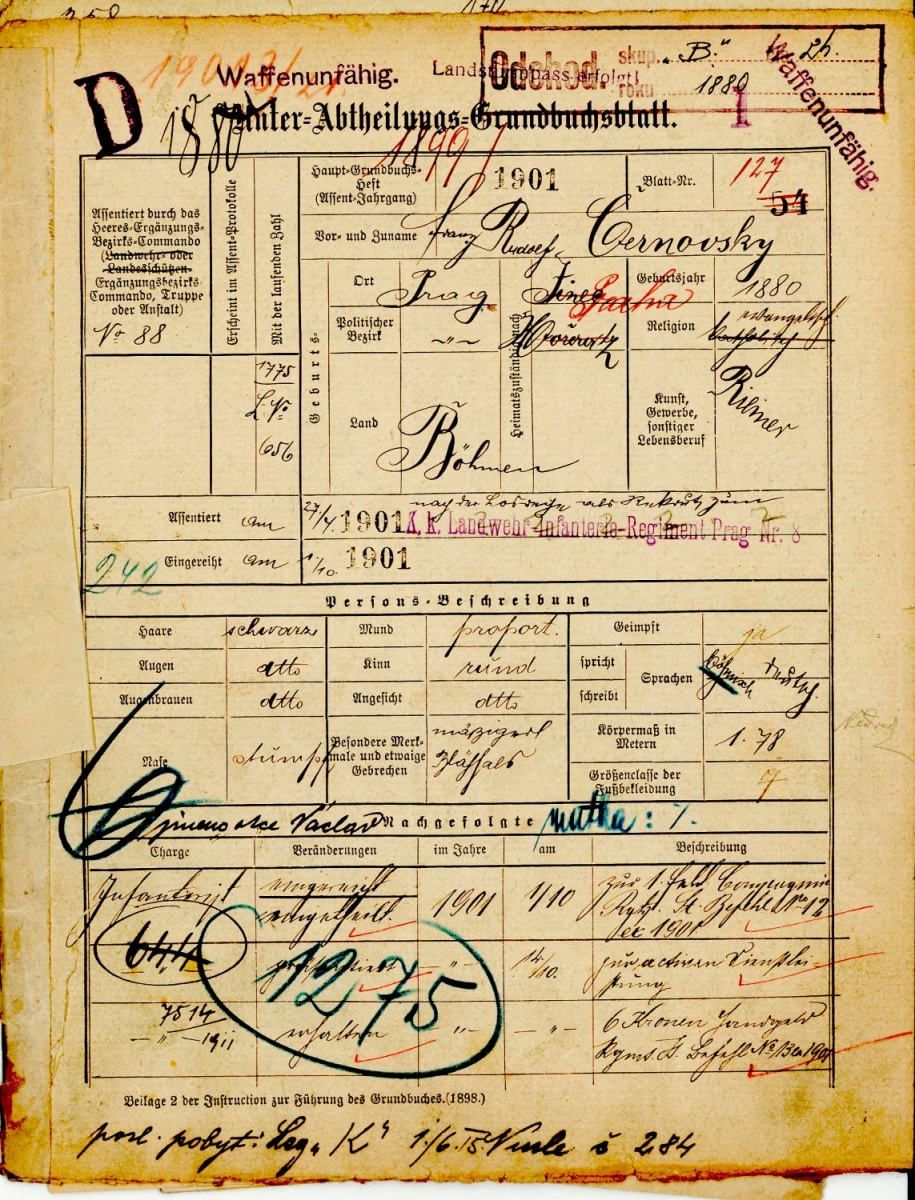 D
Waffenunfähig.
Odchod. skup. „B."
roku 1880
Waffenunfähig.
1880
Unter-Abtheilungs-Grundbuchsblatt.
1
1899
Haupt-Grundbuchs-
Heft
(Assent-Jahrgang)
1901
Blatt-Nr.
127
54
Assentiert durch das
Heeres-Ergänzungs-
Bezirks-Commando
(Landwehr- oder
Landesschützen-
Ergänzungsbezirks-
Commando, Truppe
oder Anstalt)
No 88
Erscheint im Assent-Protokolle
Mit der laufenden Zahl
1775
L. No
656
Vor- und Zuname
Franz Rudolf Černovsky
Geburts-
Ort
Prag
Politischer
Bezirk
-"-
Land
Böhmen
Heimatszuständig nach
Praha
Geburtsjahr
1880
Religion
evangelisch
katholisch
Kunst,
Gewerbe,
sonstiger
Lebensberuf
Assentiert am 27/4. 1901
nach der Losreihe als Rekrut zum
K. k. Landwehr-Infanterie-Regiment Prag Nr. 8
242
Eingereiht am 1/10. 1901
Persons-Beschreibung
Haare schwarz
Mund proport.
Geimpft ja
Augen dtto
Kinn rund
spricht
schreibt
Sprachen
böhmisch deutsch.
Augenbrauen dtto
Angesicht dtto
Nase stumpf
Besondere Merk-
male und etwaige
Gebrechen
mäßiger
Blähhals
Körpermaß in
Metern
1.78
Größenclasse der
Fußbekleidung
7
jméno otce Václav
Nachgefolgte
matka: /.
Charge
Veränderungen
im Jahre
am
Beschreibung
Infanterist
eingereiht
eingetheilt.
1901
1/10
zur 1. Feld Compagnie
Rgts. St. Befehl No 12
ex 1901
644
präsentiert
-"-
14/10.
zur activen Dienstlei-
stung
1275
7514
-"- 1911
erhalten
-"-
-"-
6 Kronen Handgeld
Rgms. St. Befehl No 13 ex 1901
Beilage 2 der Instruction zur Führung des Grundbuches. (1898.)
posl. pobyt: Leg „K" 1./6. 15. Nusle č 284